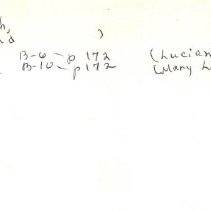 h,
d )
B-6 - p 172 (Lucian
B-10 - p 172 (Mary L